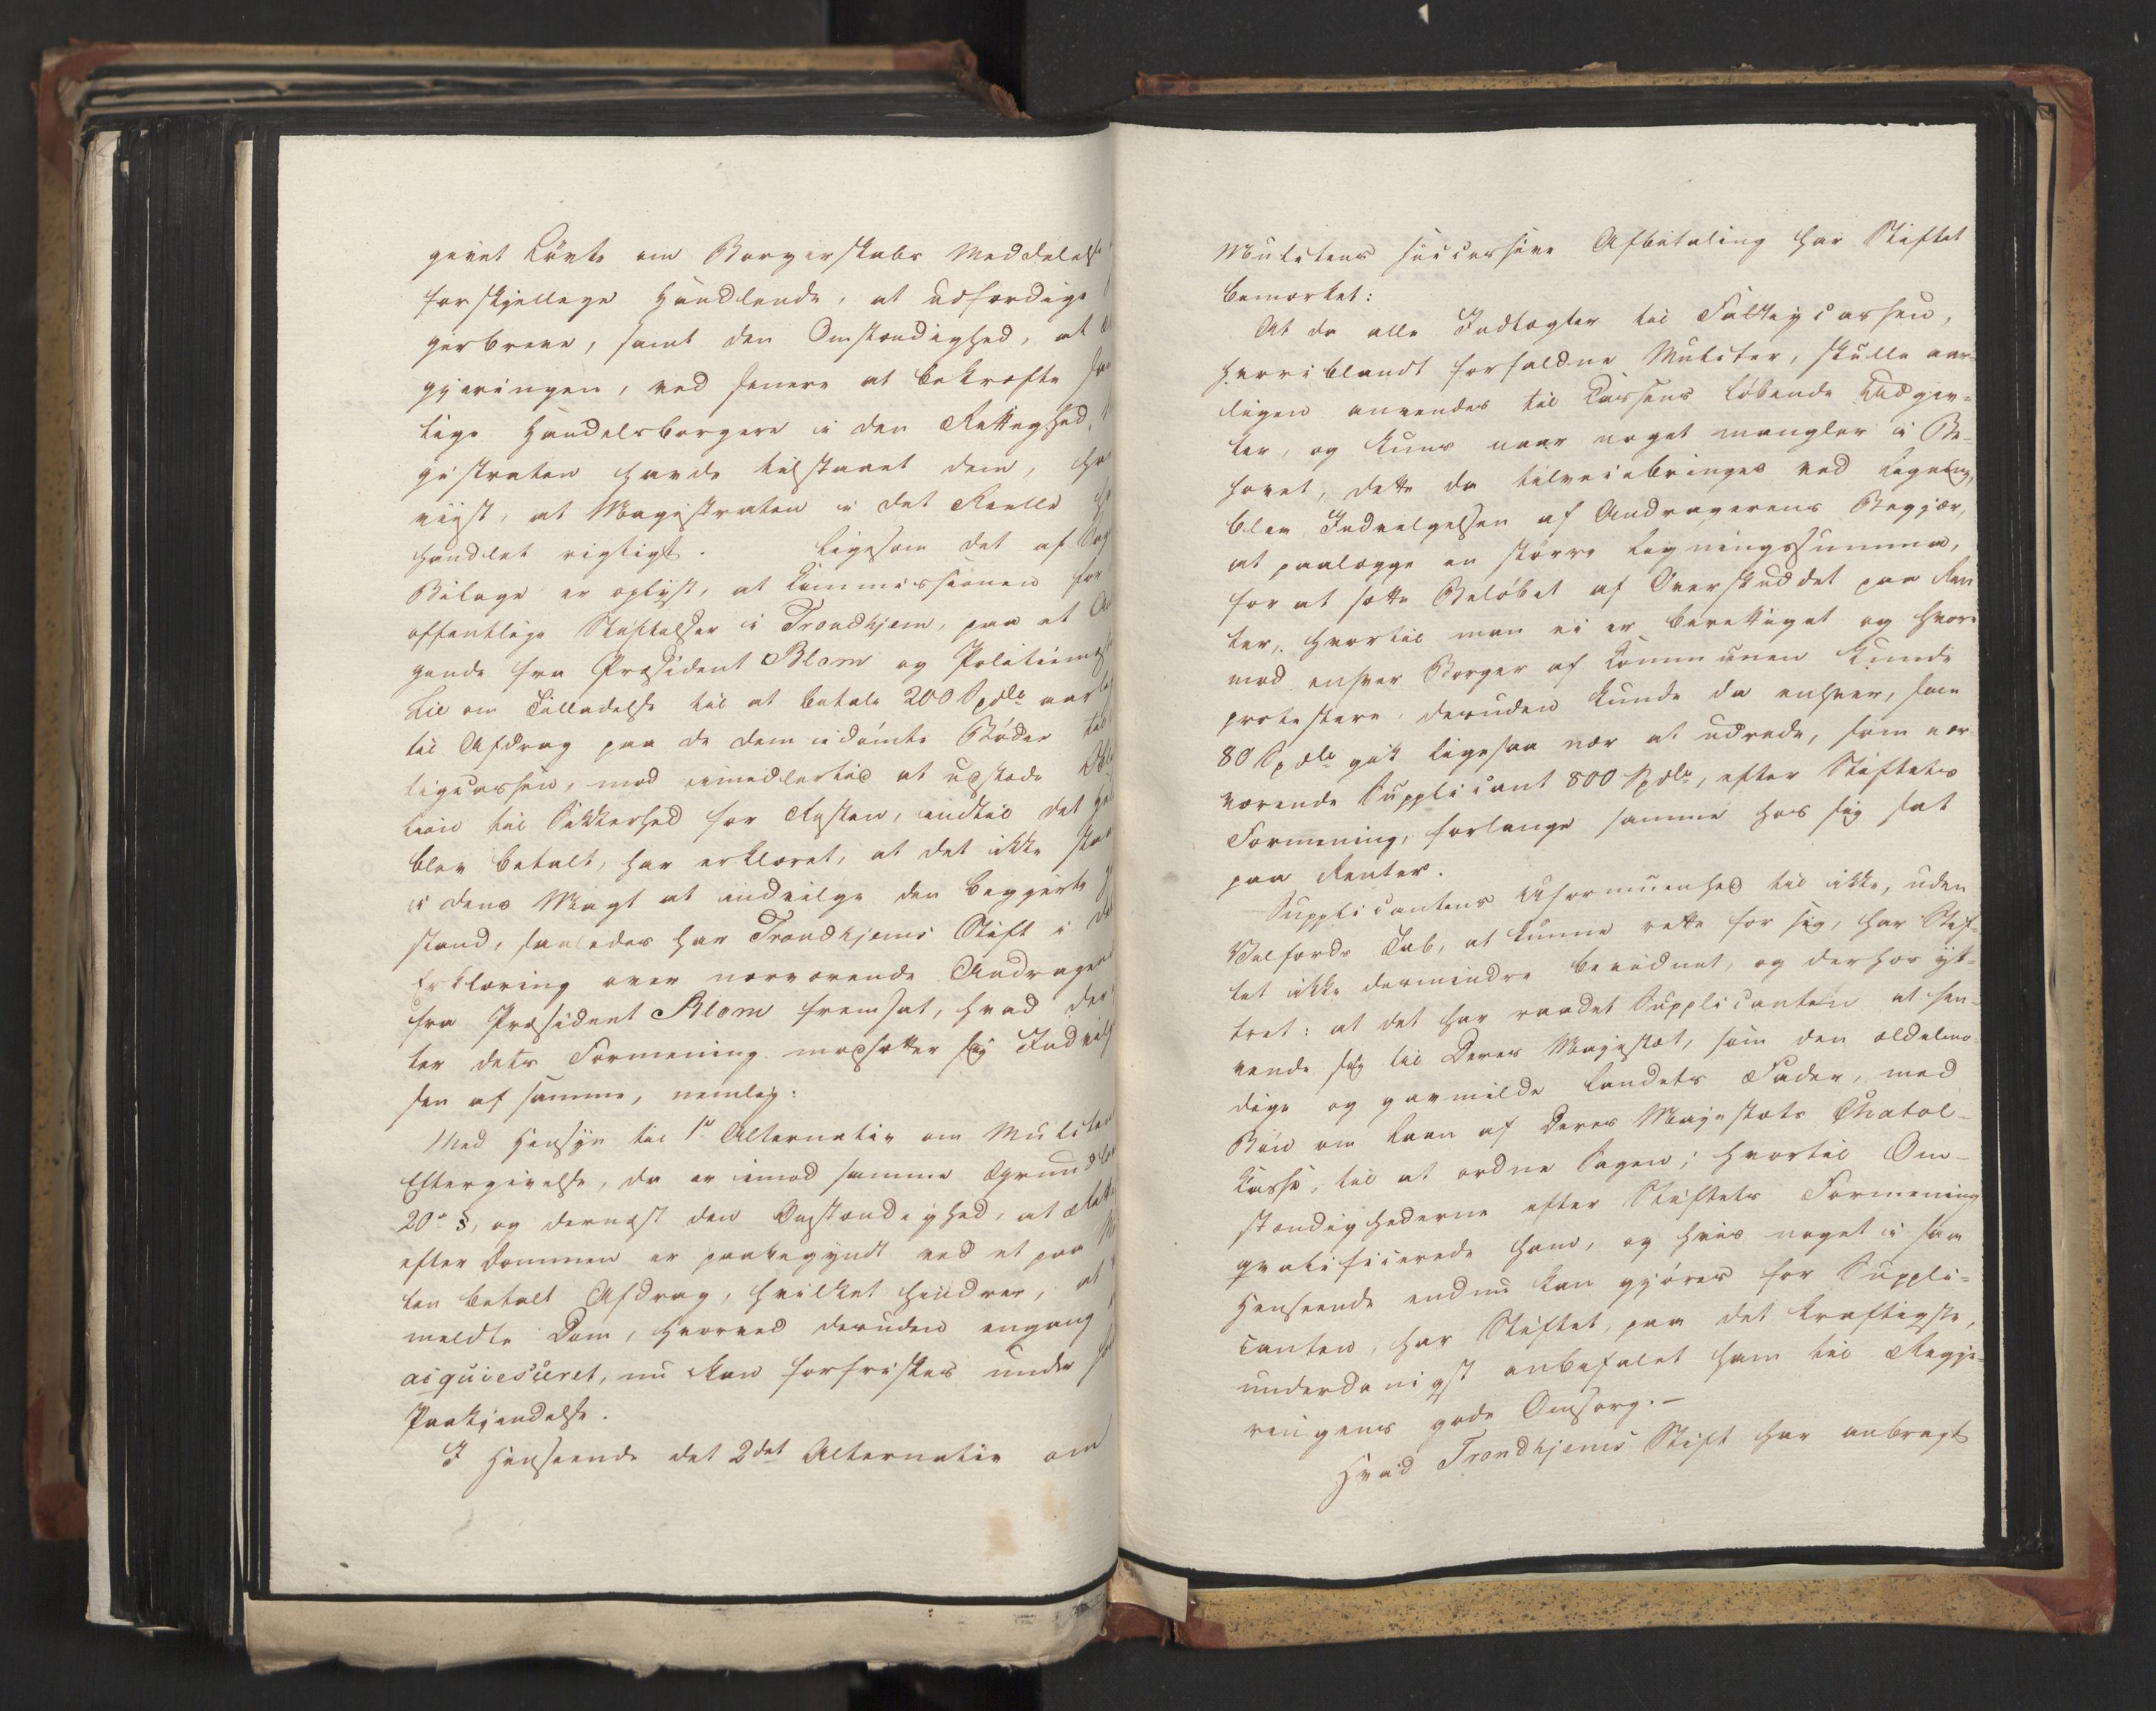 givet Løvte om Borgerskabs Meddelelse
forskjellige Handlende, at udfærdige
gerbreve, samt den Omstændighed, at
gjeringen, ved senere at bekræfte
lige Handelsborgere i den Rettighed,
gistraten havde tilstaaet dem, har
viist, at Magistraten i det Reelle
handlet rigtigt. Ligesom det af
Bilage er oplyst, at Commissionen for
offentlige Stiftelser i Trondhjem, paa et
gende fra Præsident Blom og Politiemest
Lie om Tilladelse til at betale 200 Spdlr aarl
til Afdrag paa de dem idømte Bøder til
tigcassen, mod imidlertid at udstæde
tion til Sikkerhed for Resten, indtil det
blev betalt, har erklæret, at det ikke
i dens Magt at indvilge den begjerte
stand, saaledes har Trondhjems Stift i
Erklæring over nærværende Andragende
fra Præsident Blom fremsat, hvad der
ter dets Formening modsætter sig Indvilg
sen af samme, nemlig:
Med Hensyn til 1ste Alternativ om Mulcten
Eftergivelse, da er imod samme Grundlov
20de §, og dernæst den Omstændighed, at
efter Dommen er paabegyndt ved et paa
ten betalt Afdrag, hvilket hindrer, at
meldte Dom, hvorved desuden engang
acquiesceret, nu kan forfriskes under
Paakjendelse.
I Henseende det 2det Alternativ om
Mulctens successive Afbetaling har Stiftet
bemærket:
At da alle Indtægter til Fattigcassen,
hvoriblandt forfaldne Mulcter, skulle aar-
ligen anvendes til Cassens løbende Udgiv-
ter, og kuns naar noget mangler i Be-
hovet, dette da tilveiebringes ved Ligning,
blev Indvilgelsen af Andragerens Begjær,
at paalægge en større Ligningssumma,
for at sætte Beløbet af Overskuddet paa Ren
ter, hvortil man ei er berettiget og hvori
mod enhver Borger af Communen kunde
protestere, desuden kunde da enhver, som
80 Spdlr gik ligesaa nær at udrede, som nær-
værende Supplicant 800 Spdlr, efter Stiftets
Formening, forlange samme hos sig sat
paa Renter.
Supplicantens Uformuenhed til ikke, uden
Velfærds Tab, at kunne rette for sig, har Stif-
tet ikke desmindre bevidnet, og derhos ytt-
tret: at det har raadet Supplicanten at hen-
vende sig til Deres Majestæt, som den ædelmo-
dige og gavmilde Landets Fader, med
Bøn om Laan af Deres Majestæts Chatol-
Casse, til at ordne Sagen; hvortil Om-
stændighederne efter Stiftets Formening
qvalificerede ham, og hvis noget i saa
Henseende endnu kan gjøres for Suppli-
canten, har Stiftet, paa det kraftigste,
underdanigst anbefalet ham til Regje-
ringens gode Omsorg.-
Hvad Trondhjems Stift har anbragt